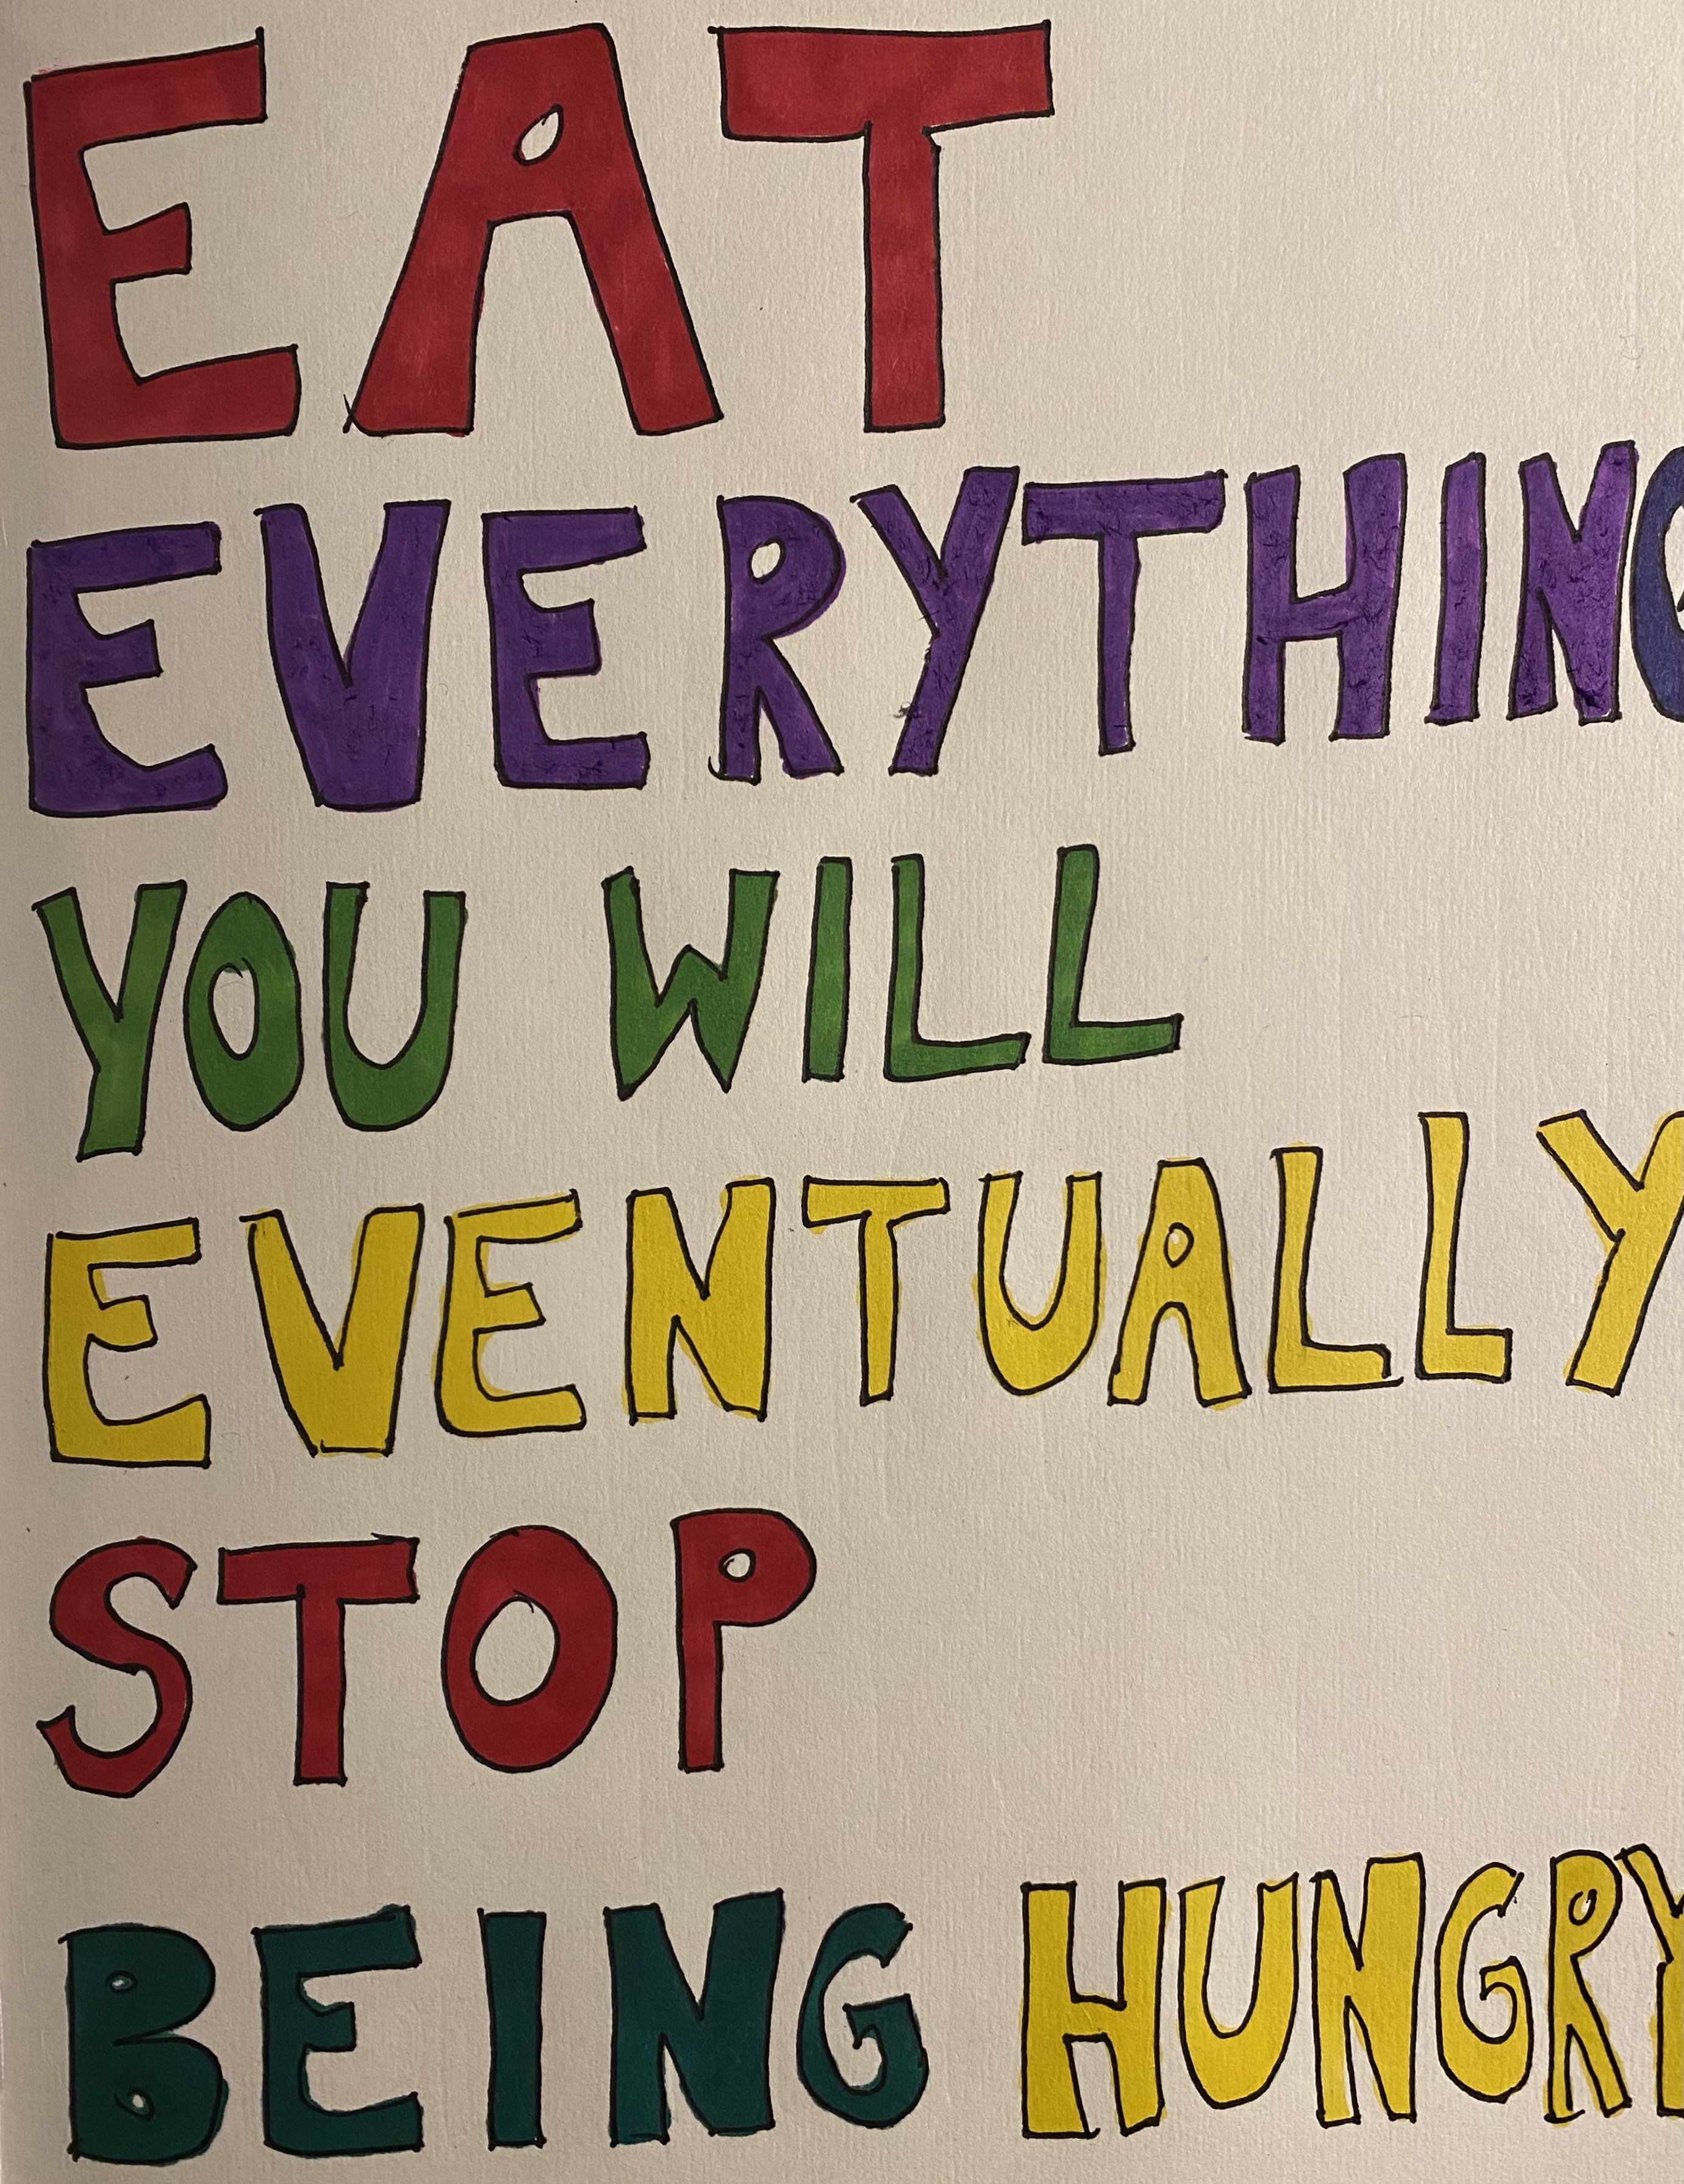 EAT
EVERYTHING
YOU WILL
EVENTUALLY
STOP
BEING HUNGRY